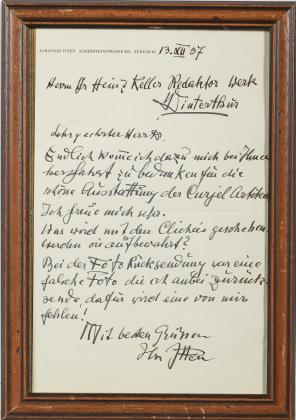 JOHANNES ITTEN ZÜRICH
13. XII 57
Herrn Dr Heinz Keller Redaktor Werk
Winterthur
Sehr geehrter Herr
Endlich komme ich dazu mich bei Ihnen
herzlichst zu bedanken für die
schöne Ausstattung der Curjel Artikel.
Ich freue mich sehr.
Was wird mit den Clichés geschehen
werden sie aufbewahrt?
Bei der Foto Rücksendung war eine
falsche Foto die ich anbei zurück-
sende, dafür wird eine von mir
fehlen!
Mit besten Grüssen
Ihr Itten